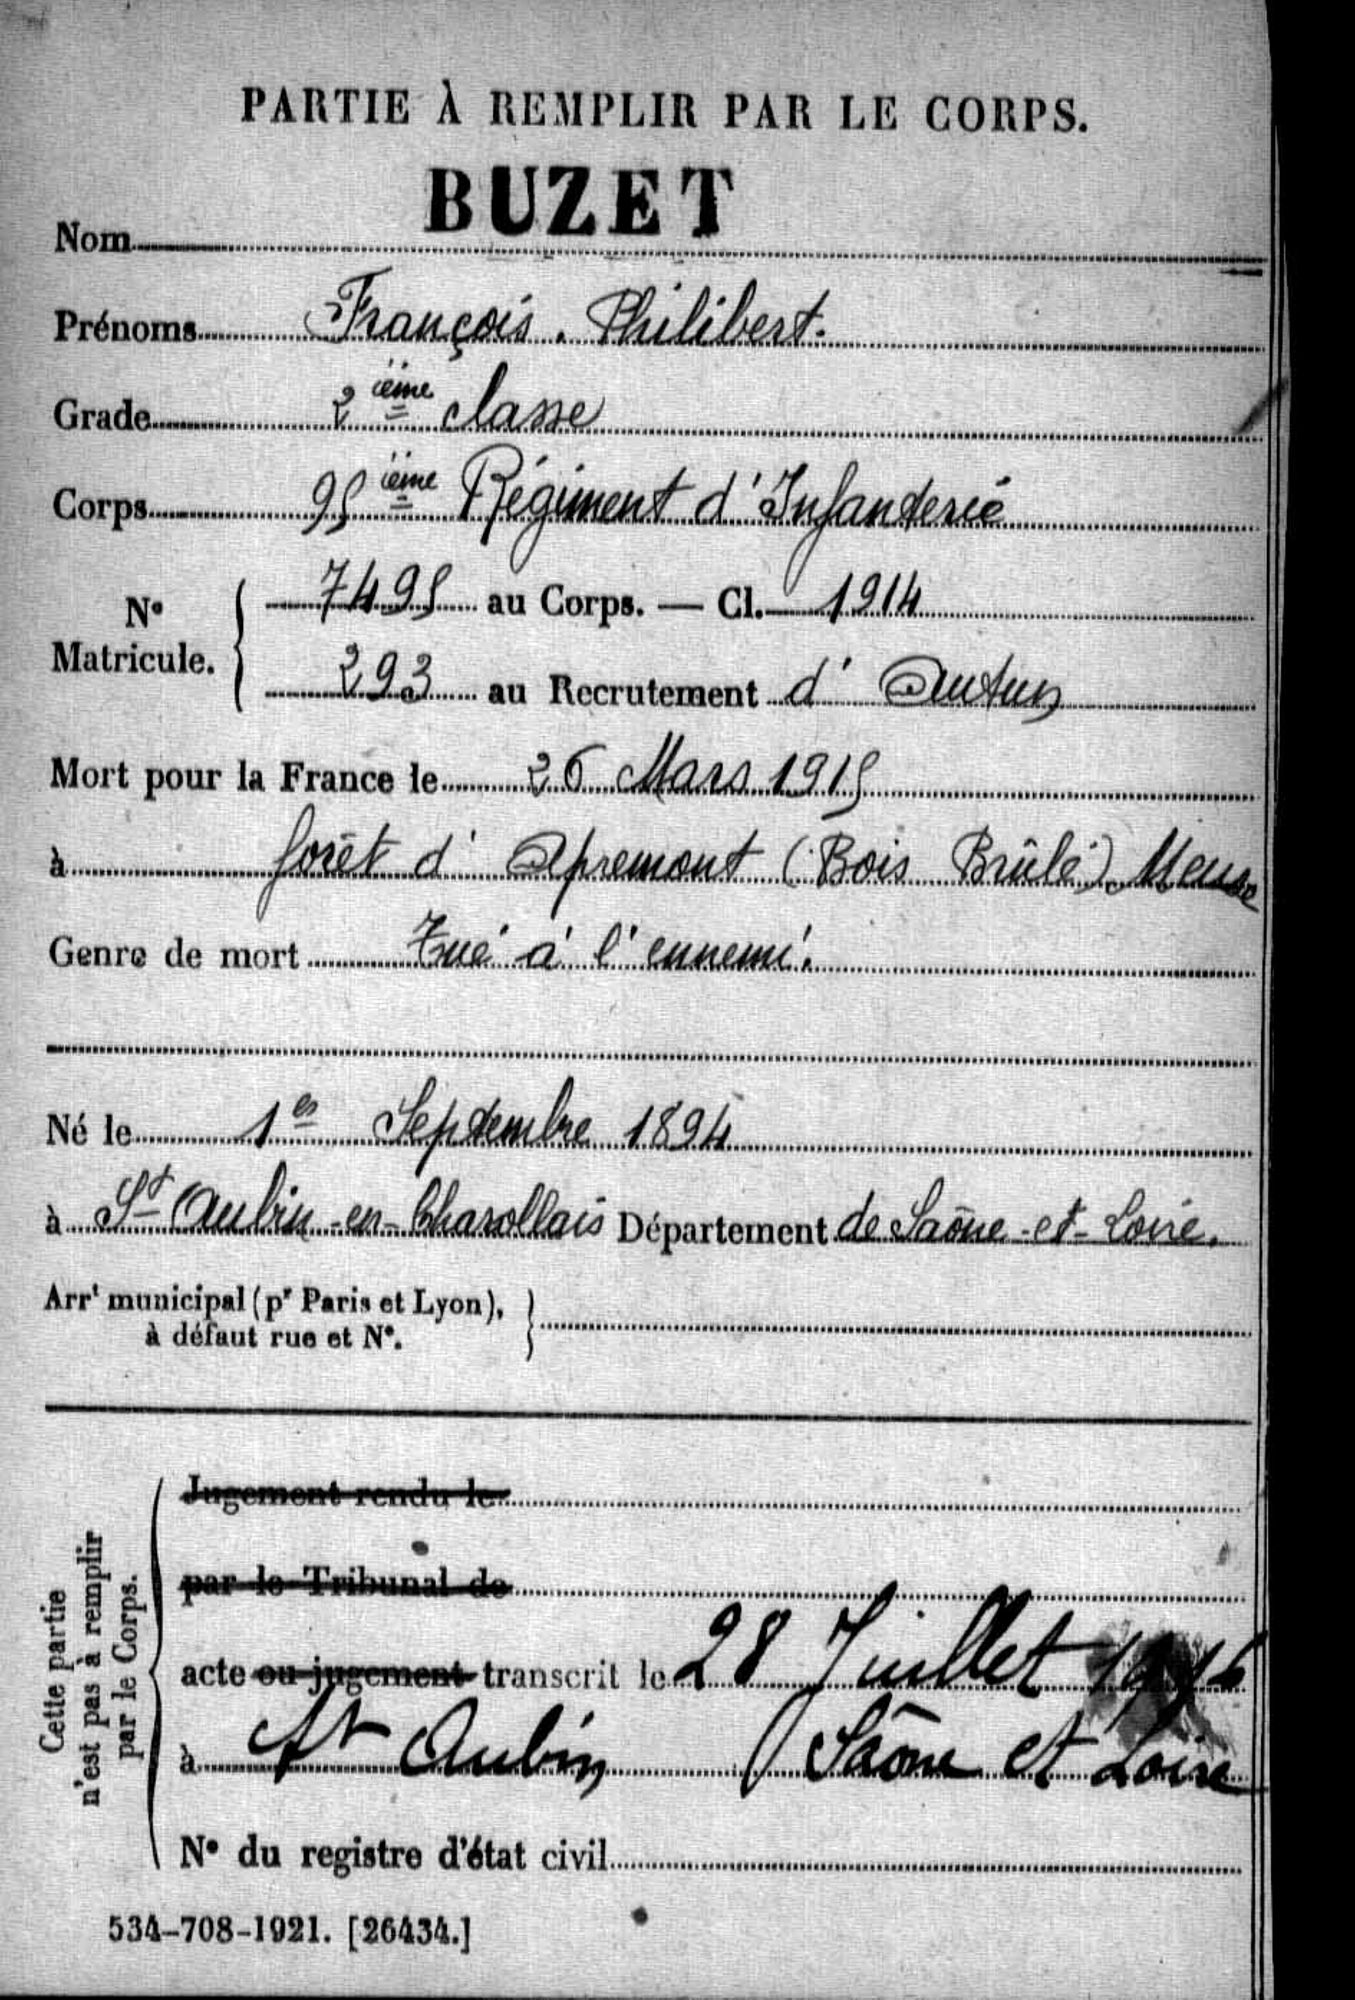 PARTIE À REMPLIR PAR LE CORPS.
Nom BUZET
Prénoms François. Philibert.
Grade 2ième classe
Corps 95ième Régiment d'Infanterie
N° Matricule. 7495 au Corps. — Cl. 1914
293 au Recrutement d'Autun
Mort pour la France le 26 Mars 1915
à forêt d'Apremont (Bois Brûlé) Meuse
Genre de mort Tué à l'ennemi.
Né le 1er Septembre 1894
à St Aubin-en-Charollais Département de Saône-et-Loire.
Arrt municipal (pr Paris et Lyon),
à défaut rue et N°.
Cette partie
n'est pas à remplir
par le Corps.
Jugement rendu le
par le Tribunal de
acte ou jugement transcrit le 28 Juillet
à St Aubin (Saône et Loire
N° du registre d'état civil
534-708-1921. [26434.]